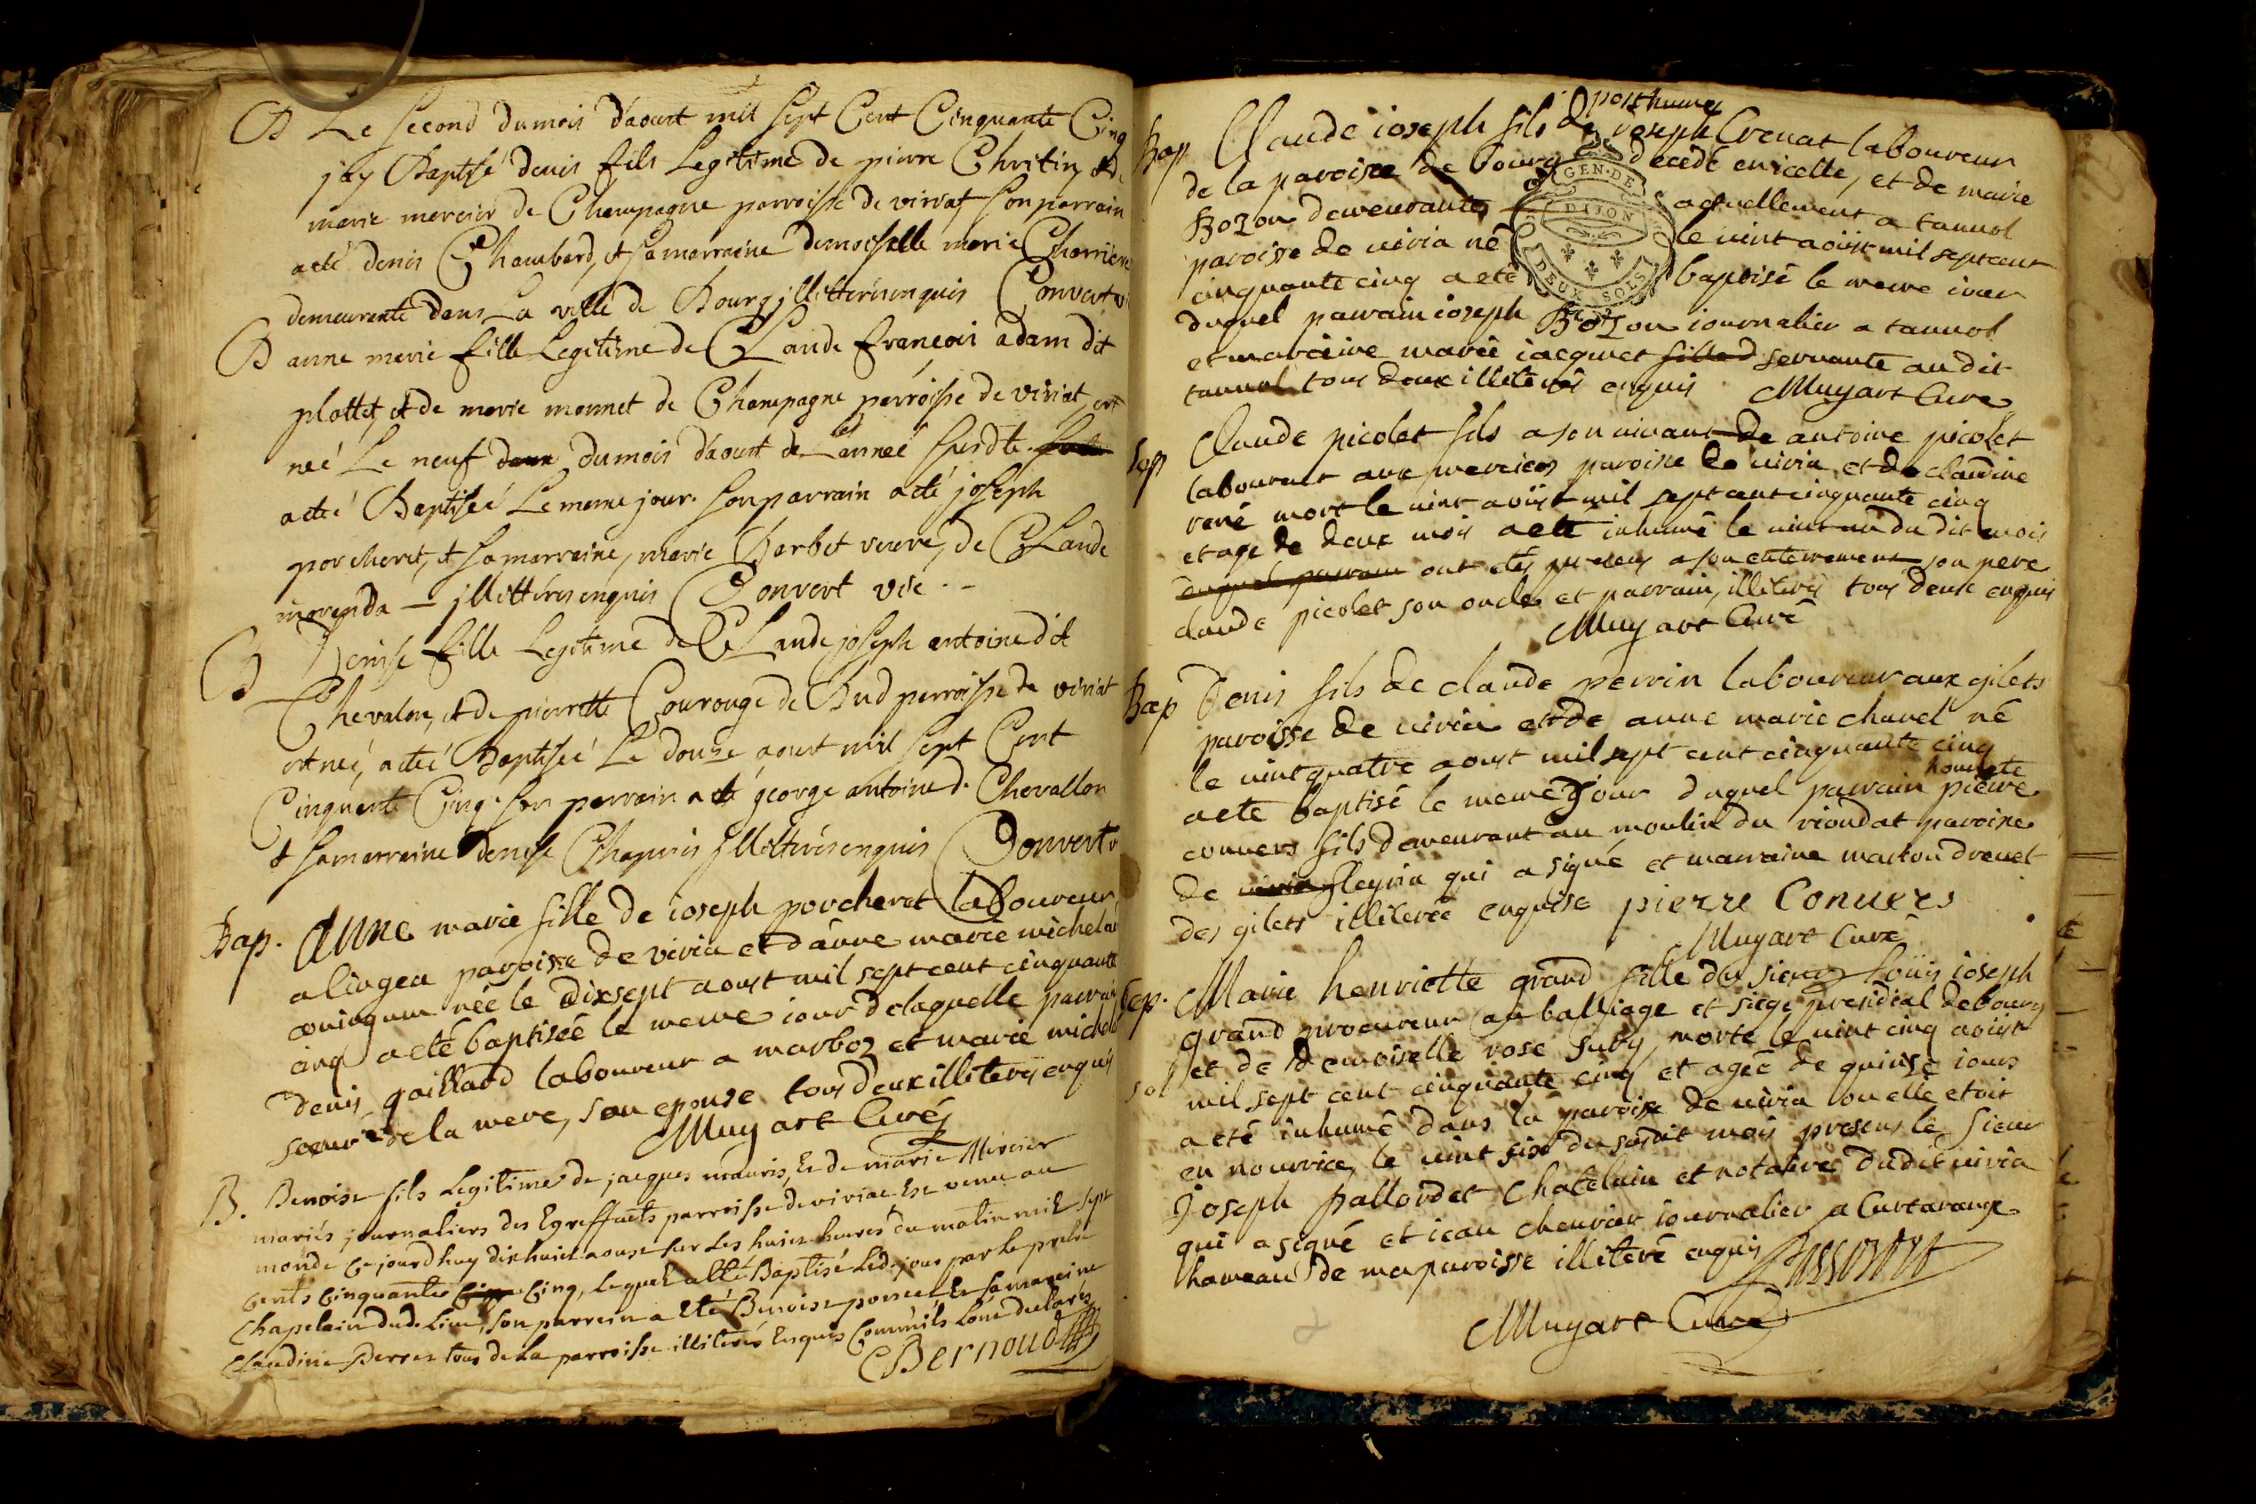 B Le second du mois d'aoust mil sept Cent Cinquante Cinq
j'ay Baptisé denis fils Legitime de pierre Chritin, et de
marie mercier de Champagne parroisse de viriat, son parrain
a eté denis Chambard, et sa marraine demoiselle marie Charriere
demeurante dans La ville de Bourg illitterés enquis Convert vic
B anne marie fille Legitime de Claude françois adam dit
plattet, et de marie monnet de Champagne parroisse de viriat, est
neé Le neuf du mois d'aoust de L'anneé susdte.
a eté Baptiseé Le meme jour. son parrain a eté joseph
porcheret, et sa marraine, marie Barbet veuve, de Claude
morenda — jllittérés enquis Convert vic. -
B Denise fille Legitime de Claude joseph antoine dit
Chevalon, et de pierrette Courouge de Bud parroisse de viriat
est neé, a eté Baptiseé Le douze aoust mil sept Cent
Cinquante Cinq. son parrain a eté george antoine d. Chevallon
et sa marraine denise Chapuis jllittérés enquis Convert v
Bap. Anne marie fille de ioseph porcheret laboureur
a lingea paroisse de viria et d'anne marie michelar
née le dixsept aoust mil sept cent cinquante
cinq a eté baptiseé le meme iour de laquelle parrain
denis gaillard laboureur a marboz et marie michel
soeur de la mere, son epouse tous deux illiterés enquis
Muyart Curé
B. Benoist fils Legitime de jacques mauris, Et de marie Mercier
mariés journaliers des Egreffiets parroisse de viriat Est venu au
monde Ce jourdhuy dix huict aoust sur Les huict heures du matin mil sept
Cents Cinquante Cinq, Lequel a Eté Baptisé Led. jour par le pretre
Chapelain dud. Lieu, son parrein a Eté Benoist poncet Et sa mareine
Claudine Perret tous de La parroisse illiterés Enquis Comm'ils L'ont declarés
Bernoud
posthume
Bap Claude ioseph fils de ioseph Crenat laboureur
de la paroisse de bourg decedé en icelle, et de marie
Bozon demeurante actuellement a tannol
paroisse de viria né le vint aoüst mil sept cent
cinquante cinq a eté baptisé le meme iour
GEN·DE DIJON DEUX SOLS
duquel parrain ioseph Bozon iournalier a tannol
et marraine marie iacquet fille servante audit
tannol tous deux illiterés enquis Muyart Cure
Sep Claude picolet fils a son vivant de antoine picolet
laboureur aux merciers paroisse de viria et de claudine
rené mort le vint aoüst mil sept cent cinquante cinq
et agé de deux mois a eté inhumé le vint un dudit mois
duquel parrain ont etés presens a son enterrement son pere
claude picolet son oncle et parrain, illiterés tous deux enquis
Muyart Curé
Bap Denis fils de claude perrin laboureur aux gilets
paroisse de viria et de anne marie chanel né
le vint quatre aoust mil sept cent cinquante cinq
honnete
a eté baptisé le meme iour duquel parrain pierre
convers fils demeurant au moulin du riondat paroisse
de viria fleyria qui a signé et marraine marton drevet
des gilets illiterée enquise pierre Conuers
Muyart Curé
Sep. Marie henriette grand fille du sieur Loüis ioseph
grand procureur au balliage et siege presidial de bourg
et de demoiselle rose suby, morte le vint cinq aoüst
sol mil sept cent cinquante cinq et agée de quinse iours
a eté inhumé dans la paroisse de viria ou elle etoit
en nourrice, le vint six du susdit mois presens le sieur
Joseph Pallordet Chatelain et notaire dudit viria
qui a signé et iean cheurier iournalier a Curtaranges
hameau de ma paroisse illiteré enquis
Muyart Curé